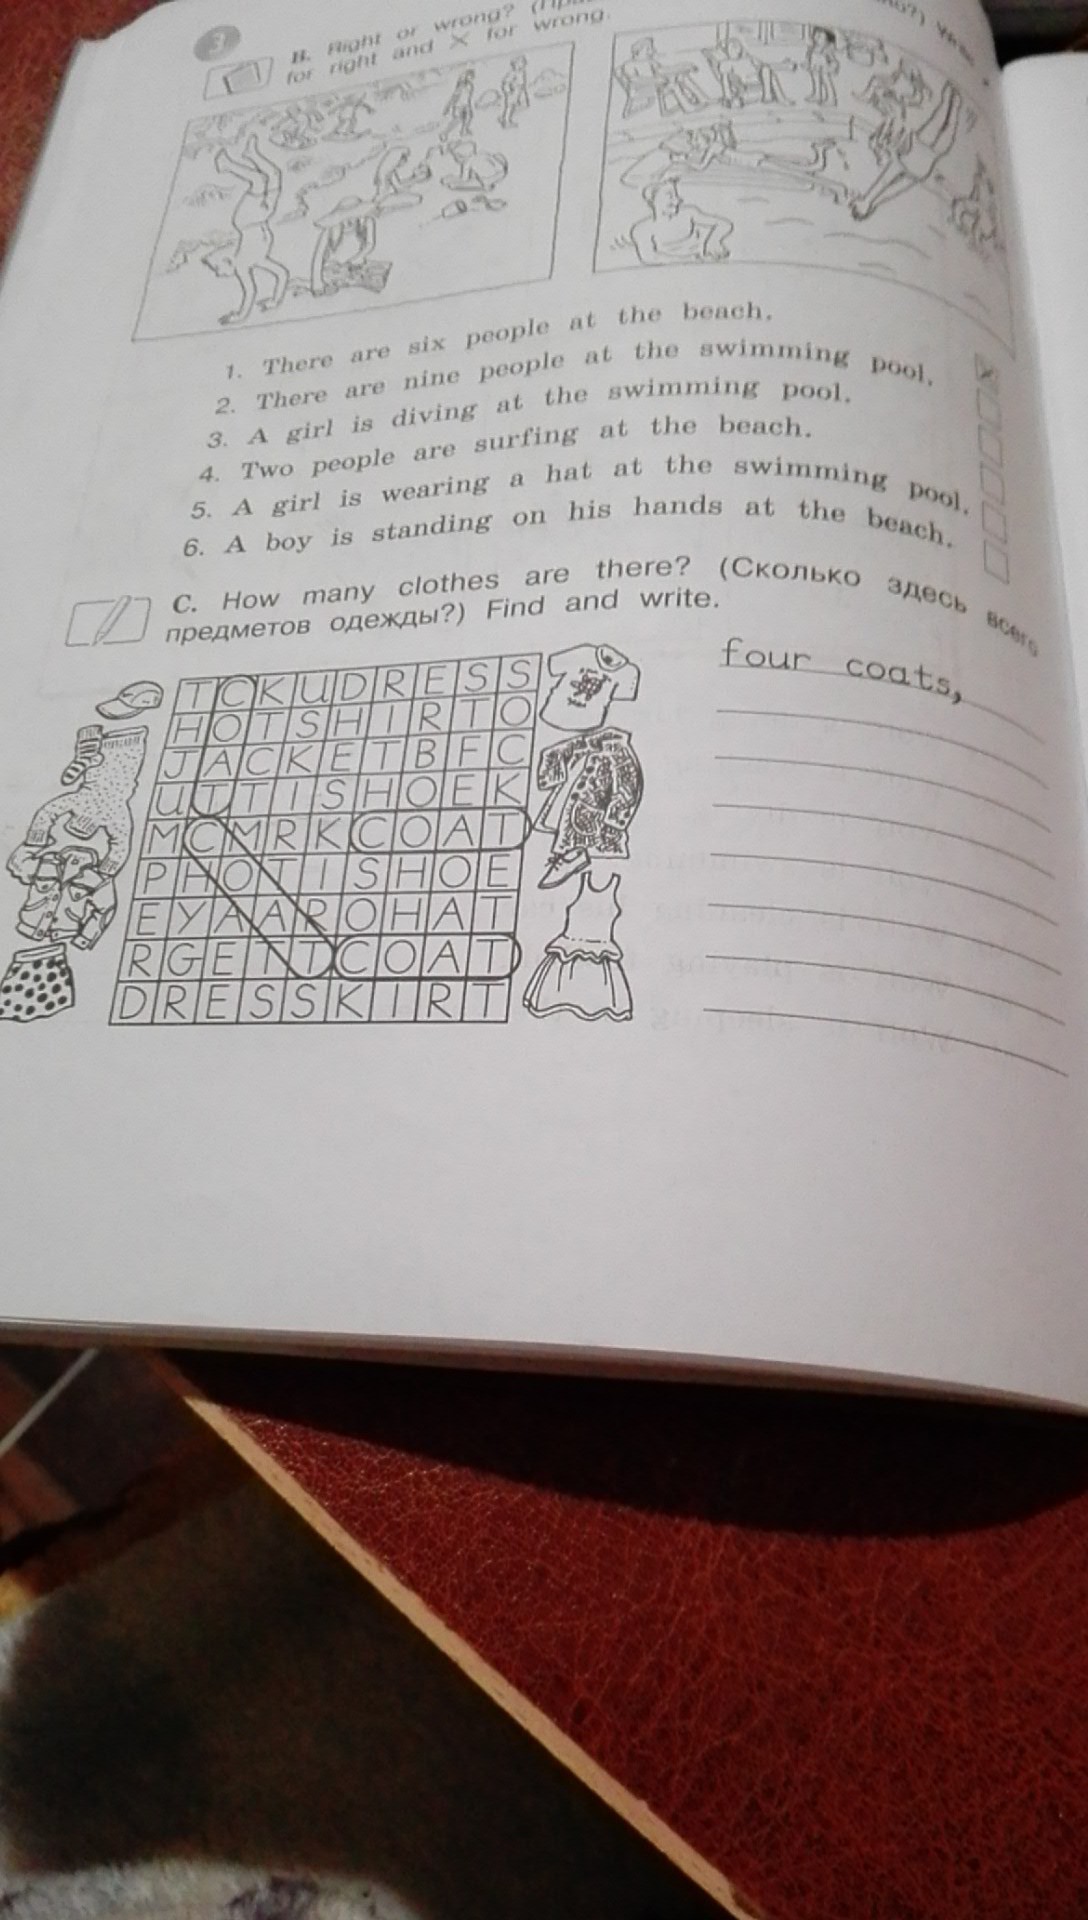 3
B. Right or wrong?
for right and × for wrong.
1. There are six people at the beach.
2. There are nine people at the swimming pool.
3. A girl is diving at the swimming pool.
4. Two people are surfing at the beach.
5. A girl is wearing a hat at the swimming pool.
6. A boy is standing on his hands at the beach.
C. How many clothes are there? (Сколько здесь всего
предметов одежды?) Find and write.
four coats,
TCKUDRESS
HOTSHIRTO
JACKETBFC
UTTISHOEK
MCMRKCOAT
PHOTISHOE
EYAAROHAT
RGETTCOAT
DRESSKIRT